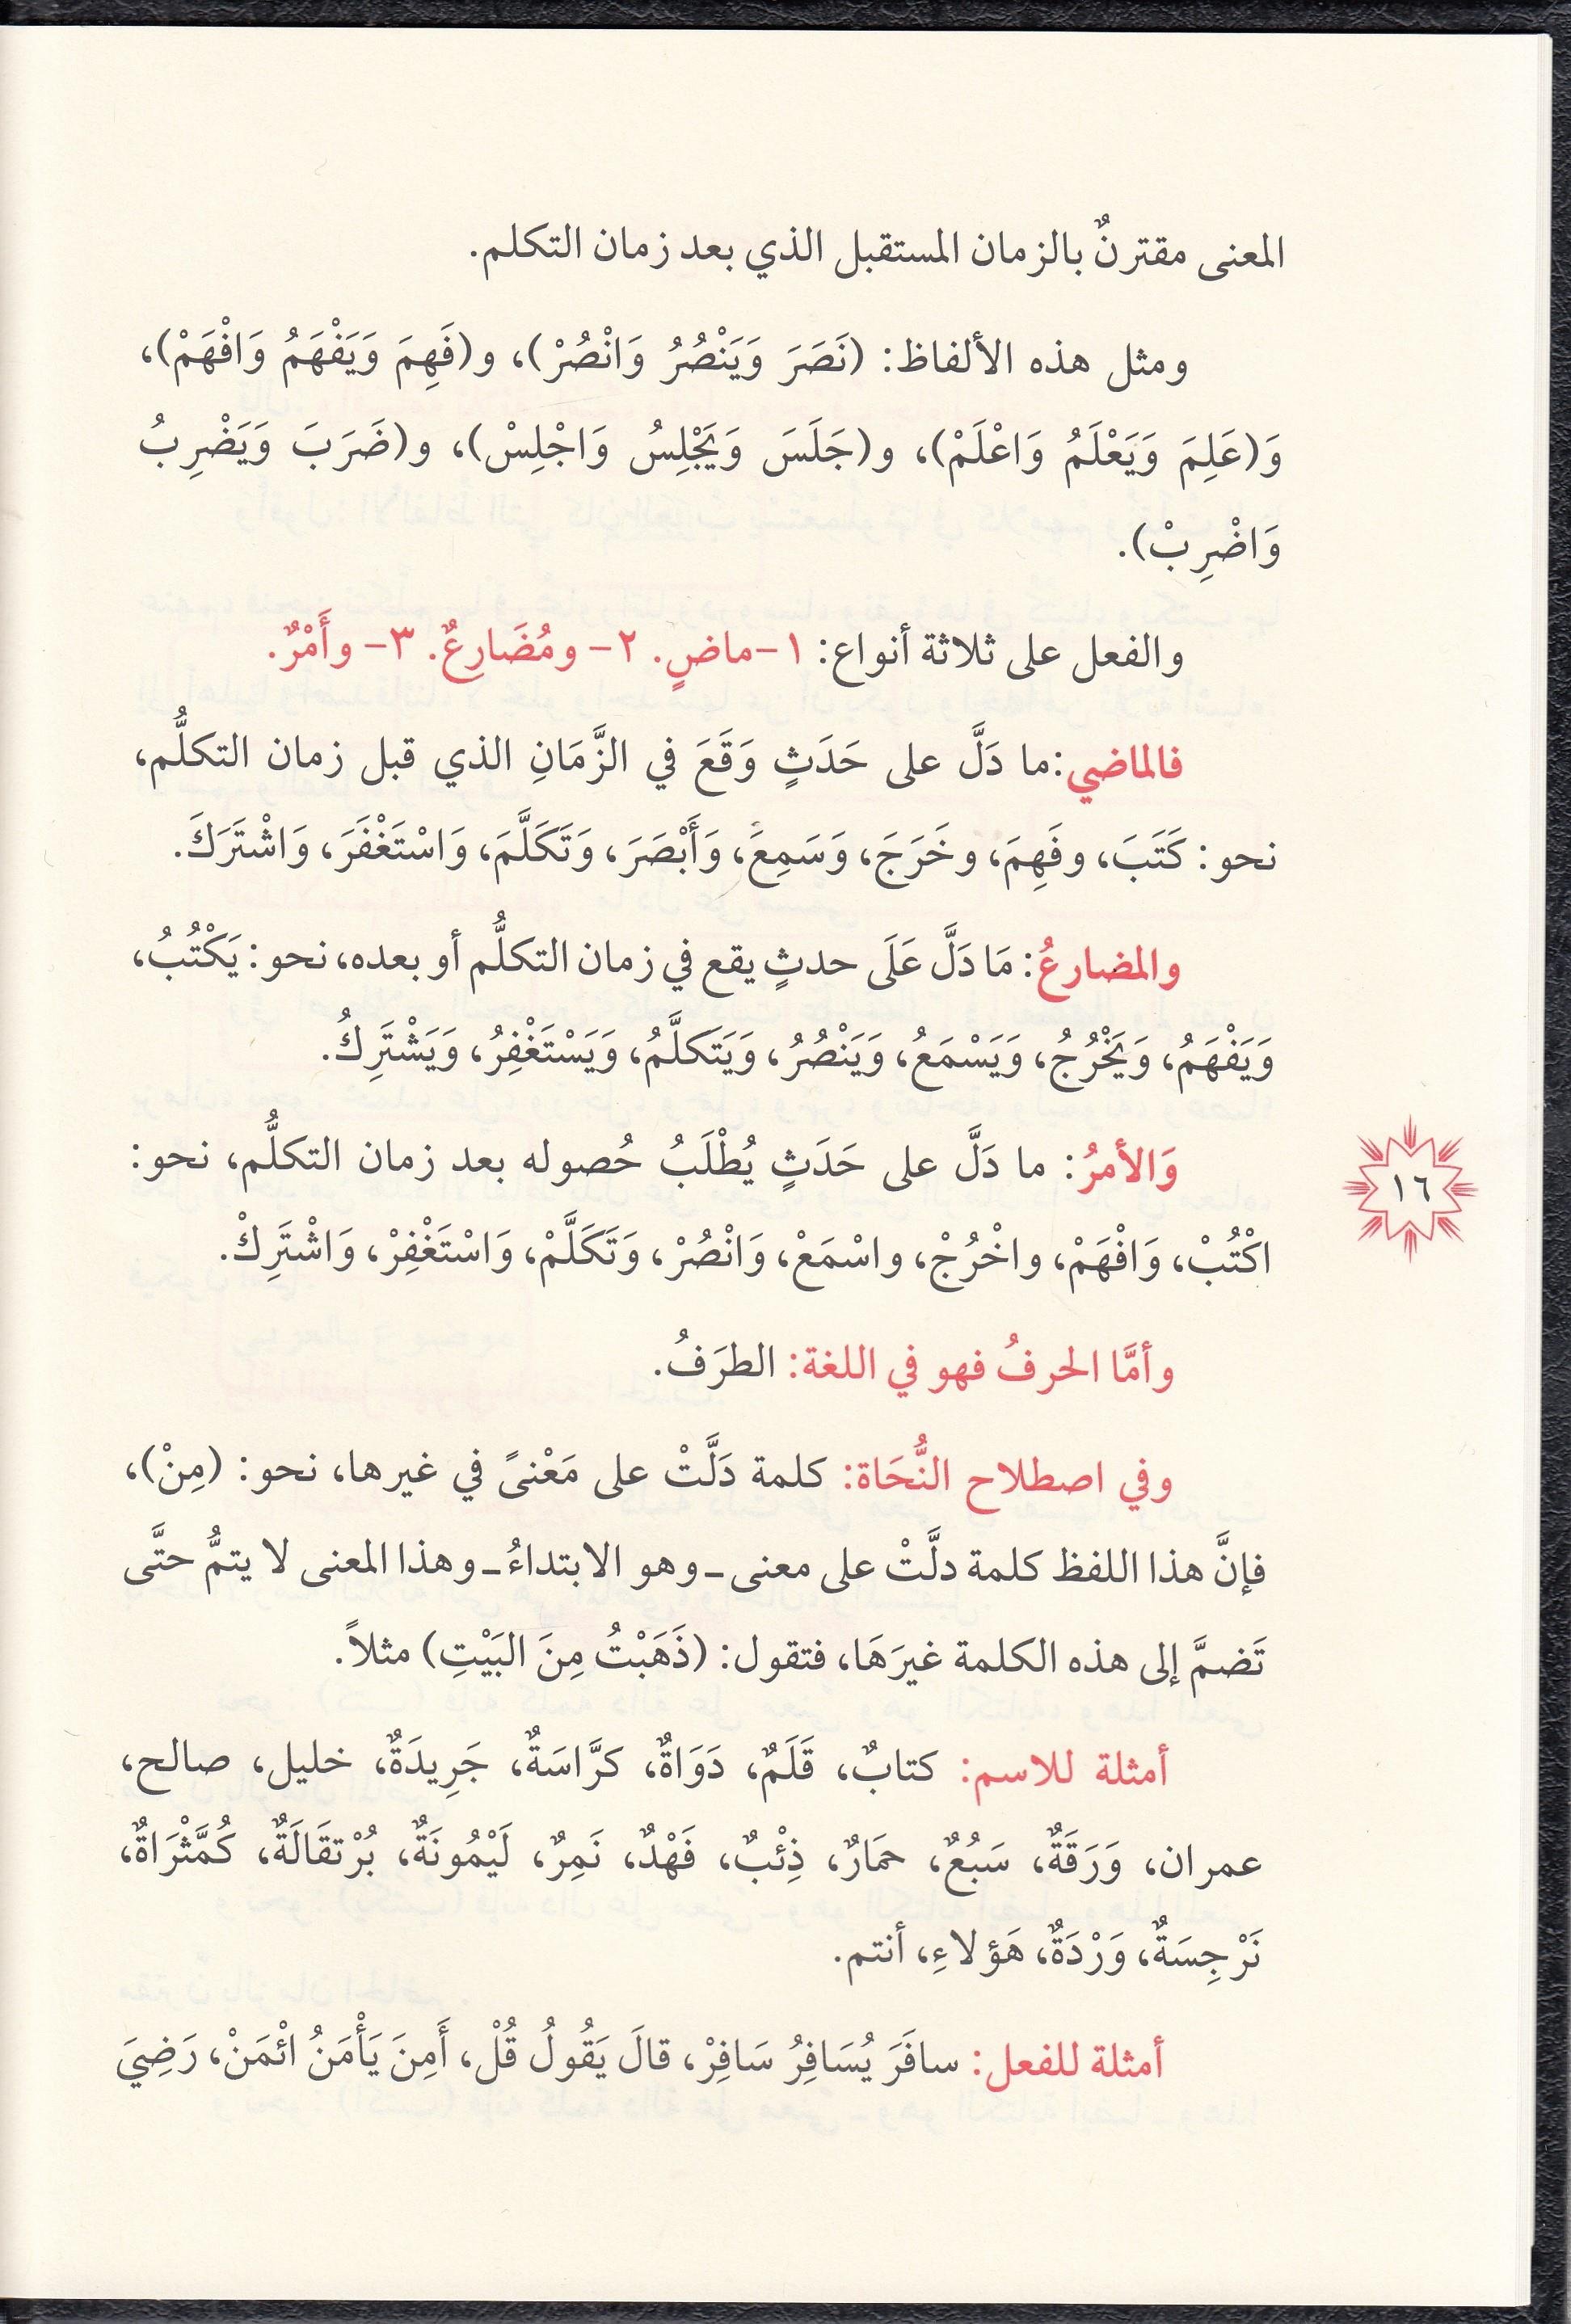 المعنى مقترنٌ بالزمان المستقبل الذي بعد زمان التكلم.
ومثل هذه الألفاظ: (نَصَرَ وَيَنْصُرُ وَانْصُرْ)، و(فَهِمَ وَيَفْهَمُ وَافْهَمْ)،
وَ(عَلِمَ وَيَعْلَمُ وَاعْلَمْ)، و(جَلَسَ وَيَجْلِسُ وَاجْلِسْ)، و(ضَرَبَ وَيَضْرِبُ
وَاضْرِبْ).
والفعل على ثلاثة أنواع: ١-ماضٍ. ٢- ومُضَارِعٌ. ٣- وأَمْرٌ.
فالماضي:ما دَلَّ على حَدَثٍ وَقَعَ في الزَّمَانِ الذي قبل زمان التكلُّم،
نحو: كَتَبَ، وفَهِمَ، وخَرَجَ، وَسَمِعَ، وَأَبْصَرَ، وَتَكَلَّمَ، وَاسْتَغْفَرَ، وَاشْتَرَكَ.
والمضارعُ: مَا دَلَّ عَلَى حدثٍ يقع في زمان التكلُّم أو بعده، نحو: يَكْتُبُ،
وَيَفْهَمُ، وَيَخْرُجُ، وَيَسْمَعُ، وَيَنْصُرُ، وَيَتَكلَّمُ، وَيَسْتَغْفِرُ، وَيَشْتَرِكُ.
وَالأمرُ: ما دَلَّ على حَدَثٍ يُطْلَبُ حُصوله بعد زمان التكلُّم، نحو:
١٦
اكْتُبْ، وَافْهَمْ، واخْرُجْ، واسْمَعْ، وَانْصُرْ، وَتَكَلَّمْ، وَاسْتَغْفِرْ، وَاشْتَرِكْ.
وأمَّا الحرفُ فهو في اللغة: الطرَفُ.
وفي اصطلاح النُّحَاة: كلمة دَلَّتْ على مَعْنىً في غيرها، نحو: (مِنْ)،
فإنَّ هذا اللفظ كلمة دلَّتْ على معنى ـ وهو الابتداءُ ـ وهذا المعنى لا يتمُّ حتَّى
تَضمَّ إلى هذه الكلمة غيرَهَا، فتقول: (ذَهَبْتُ مِنَ البَيْتِ) مثلاً.
أمثلة للاسم: كتابٌ، قَلَمٌ، دَوَاةٌ، كرَّاسَةٌ، جَرِيدَةٌ، خليل، صالح،
عمران، وَرَقَةٌ، سَبُعٌ، حمَارٌ، ذِئْبٌ، فَهْدٌ، نَمِرٌ، لَيْمُونَةٌ، بُرْتقَالَةٌ، كُمَّثْرَاةٌ،
نَرْجِسَةٌ، وَرْدَةٌ، هَؤلاءِ، أنتم.
أمثلة للفعل: سافَرَ يُسَافِرُ سَافِرْ، قالَ يَقُولُ قُلْ، أَمِنَ يَأْمَنُ ائْمَنْ، رَضِيَ